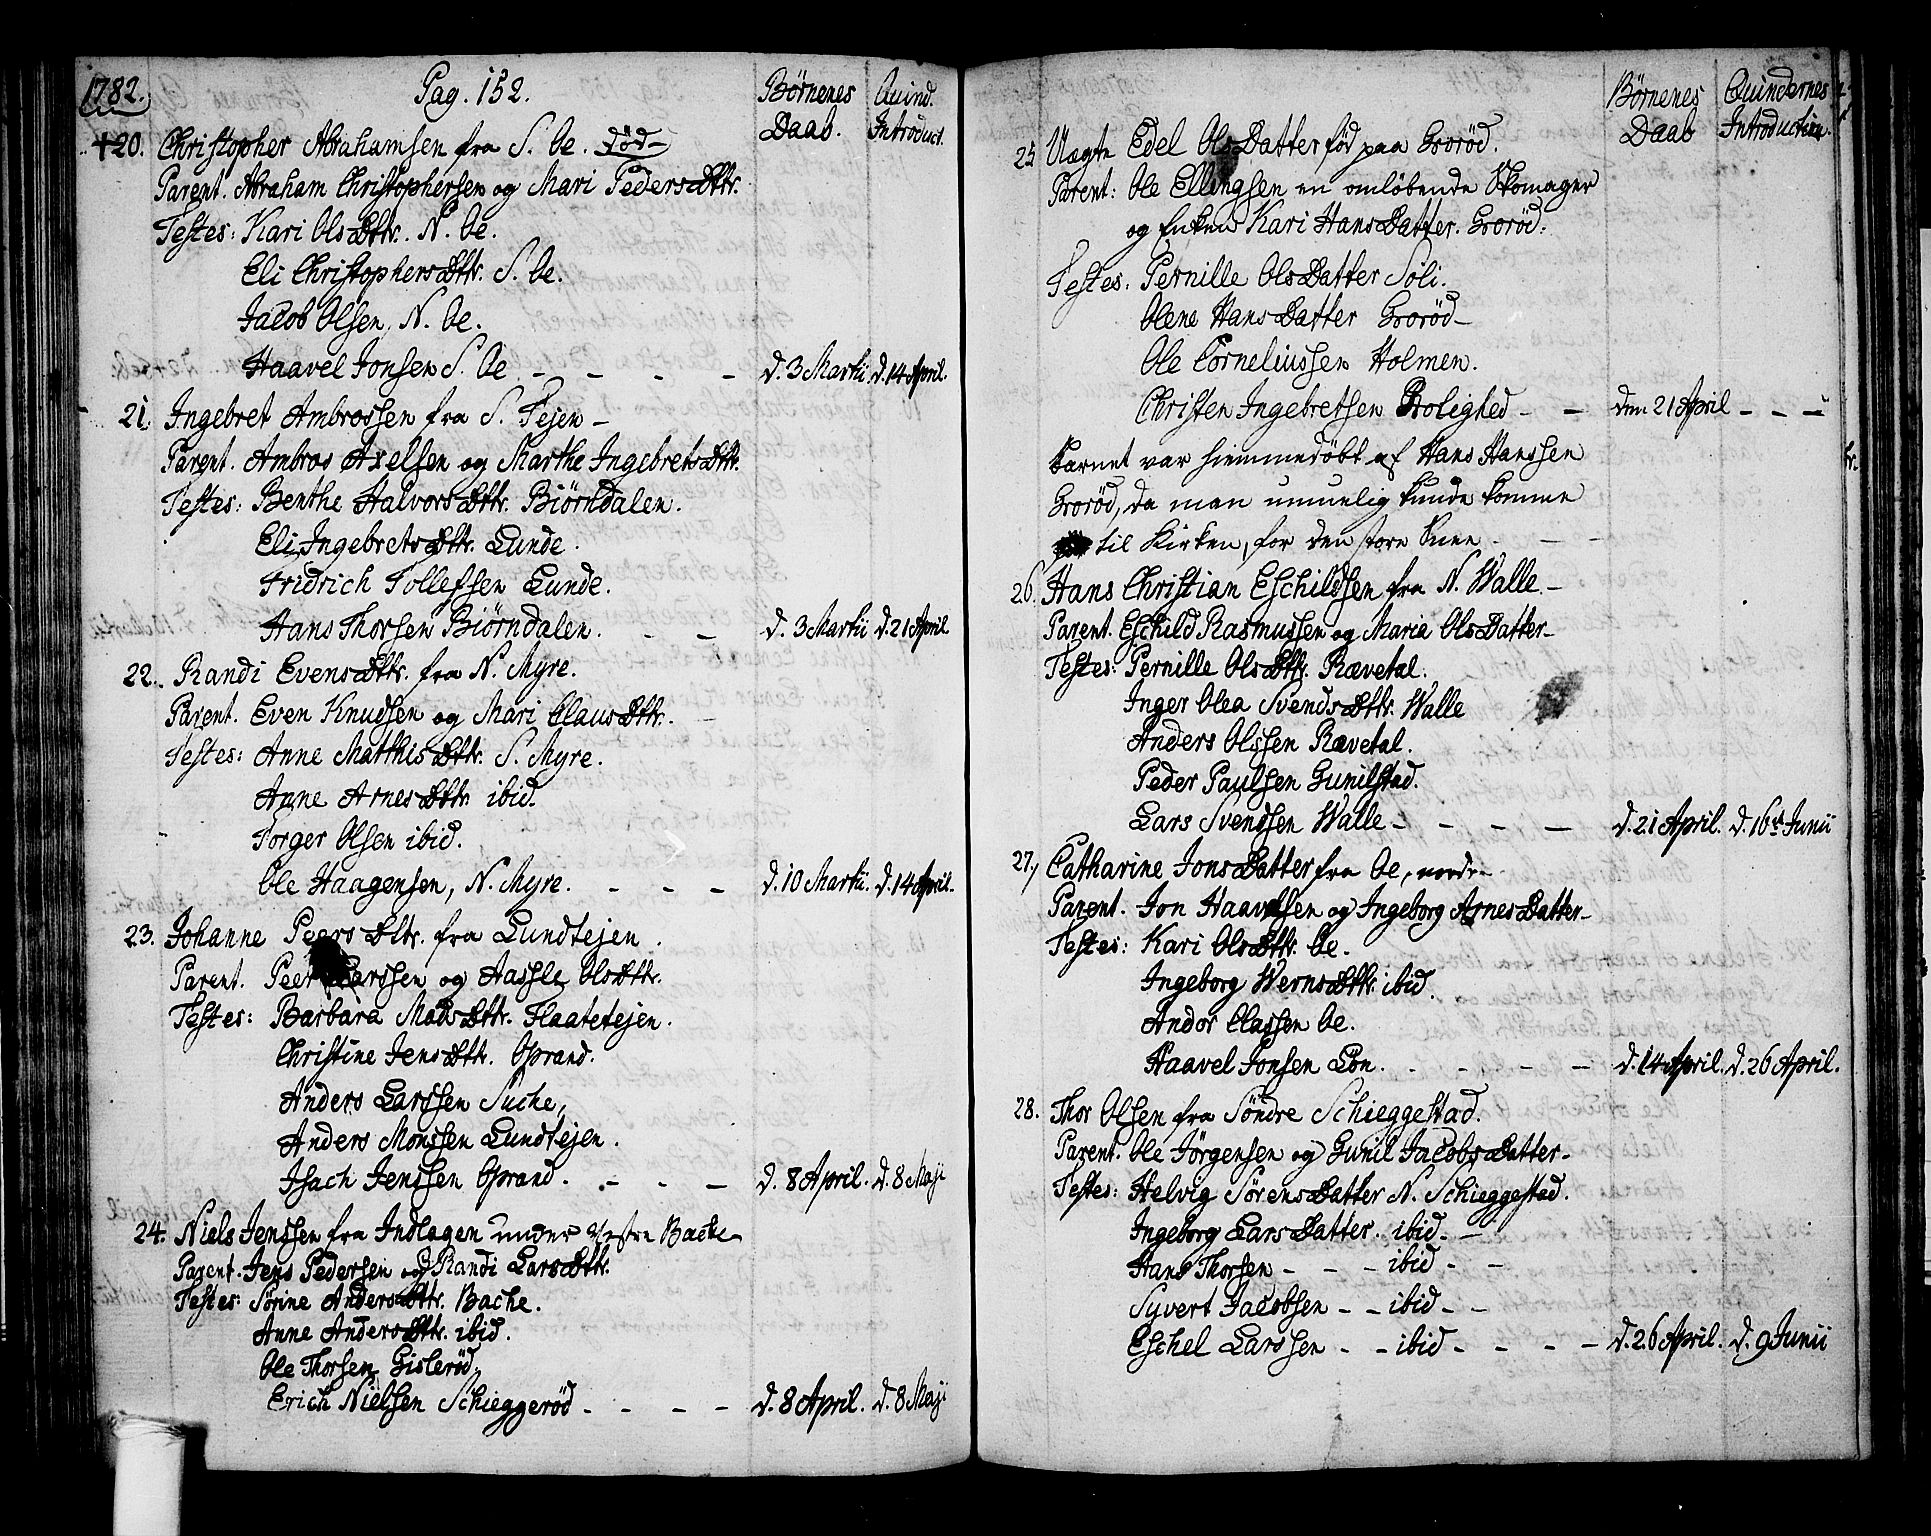 1782.
Pag. 152.
Børnenes Daab.
Quind. Introduct.
+20. Christopher Abrahamsen fra S. Oe. død
Parent. Abraham Christophersen og Mari PedersDttr.
Testes: Kari OlsDttr. N. Oe.
Eli ChristophersDttr. S. Oe.
Jacob Olsen, N. Oe.
Haavel Jonsen S. Oe - - - - d. 3 Martii. d. 14 April.
21. Ingebret Ambrossen fra S. Tejen -
Parent. Ambros Axelsen og Marthe IngebretsDttr.
Testes: Benthe HalvorsDttr. Biörndalen.
Eli IngebretsDttr. Lunde.
Fridrich Tollefsen Lunde.
Hans Thorsen Biörndalen. - - d. 3 Martii d. 21 April
22. Randi EvensDttr. fra N. Myre.
Parent. Even Knudsen og Mari ClausDttr. -
Testes: Anne MatthisDttr. S. Myre.
Anne ArnesDttr ibid.
Torger Olsen ibid.
Ole Haagensen, N. Myre. - - - d. 10 Martii. d. 14 April.
23. Johanne PeersDttr. fra Lundtejen.
Parent. Peer Larssen og Aassle OlsDttr.
Testes: Barbara MadsDttr. Flaatetejen.
Christine JensDttr. Oprand.
Anders Larssen Suche,
Anders Monssen Lundtejen.
Isach Jenssen Oprand. - - - d. 8 April. d. 8 Maji
24. Niels Jenssen fra Indlagen under Vestre Backe
Parent. Jens Pedersen og Randi LarsDttr.
Testes: Sørine AndersDttr. Bache.
Anne AndersDttr. ibid.
Ole Thorsen Gislerød.
Erich Nielsen Schieggerød - - - - d. 8 April. d. 8 Maji
Børnenes Daab
Quindernes Introduction.
25 Uægte Edel OlsDatter fød paa Grorød.
Parent: Ole Ellingsen en omløbende Skomager
og Enken Kari HansDatter. Grorød.
Testes. Pernille OlsDatter Soli.
Olene HansDatter Grorød -
Ole Corneliussen Holmen.
Christen Ingebretsen Rolighed - - den 21 April - - -
barnet var hiemmedøbt af Hans Hanssen
Grorød, da man umuelig kunde komme
til Kirken, for den store Snee - -
26. Hans Christian Eschildsen fra N. Walle -
Parent. Eschild Rasmussen og Maria OlsDatter -
Testes: Pernille OlsDttr. Rævetal.
Inger Olea SvendsDttr. Walle
Anders Olssen Rævetal.
Peder Paulsen Gunilstad.
Lars Svendsen Walle - - - - d. 21 April. d. 16 Junii
27. Catharine JonsDatter fra Oe, nordr -
Parent. Jon Haavelsen og Ingeborg ArnesDatter -
Testes: Kari OlsDttr. Oe.
Ingeborg WernsDttr. ibid.
Andor Classen Oe.
Haavel Jonsen Lon. - - - - d. 14 April. d. 26 April.
28. Thor Olsen fra Söndre Schieggestad.
Parent. Ole Jörgensen og Gunil JacobsDatter -
Testes: Helvig SörensDatter N. Schieggestad.
Ingeborg LarsDatter. ibid - -
Hans Thorsen - - - ibid - -
Syvert Jacobsen - - ibid - -
Eschel Larssen - - ibid - - - - d. 26 April. d. 9 Junii